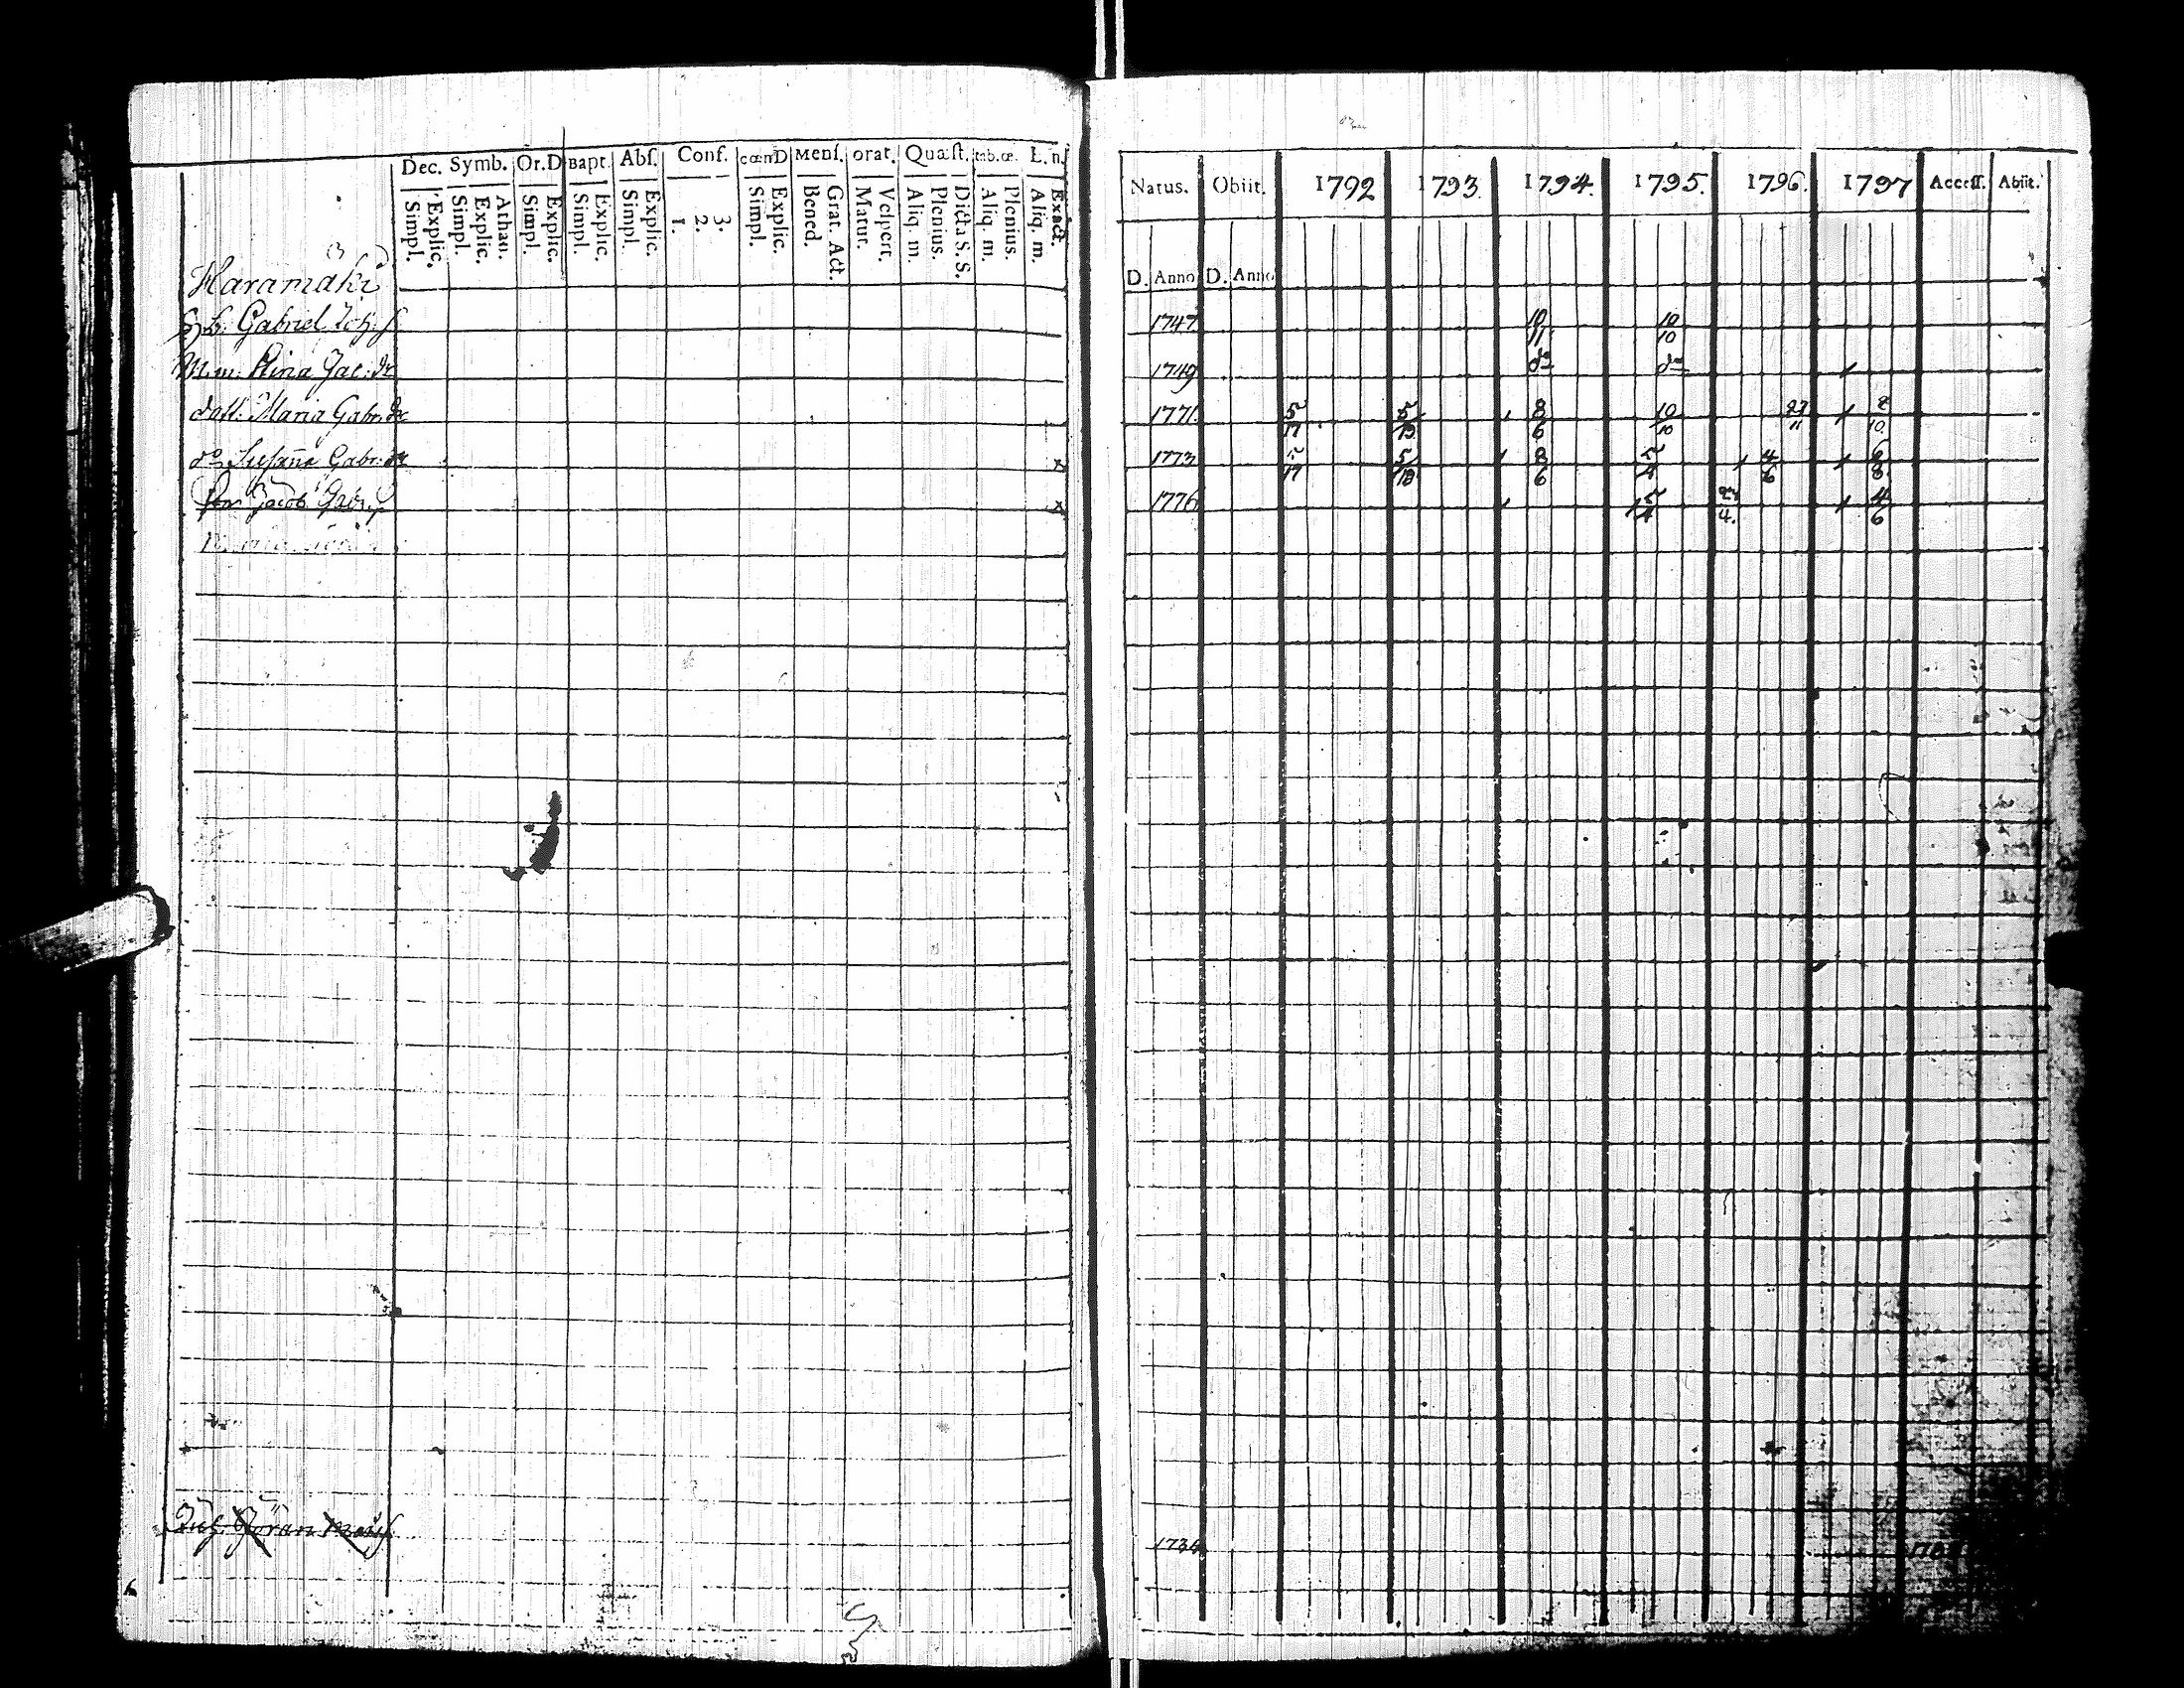 Dec. Symb. Or.D Bapt. Abſ. Conf. cœnD Menſ. orat. Quæſt. tab.œ. L. n.
Simpl. Explic. Simpl. Explic. Athan. Simpl. Explic. Simpl. Explic. Simpl. Explic. 1. 2. 3. Simpl. Explic. Bened. Grat. Act. Matut. Veſpert. Aliq. m. Plenius. Dicta S. S. Aliq. m. Plenius. Aliq. m. Exact.
Natus. Obiit. 1792 1793 1794. 1795. 1796. 1797 Acceſſ. Abiit.
D. Anno D. Anno
Haramäki
Gabriel Joh: 1747 10/11 10/10
M.m: Jac: dr 1749 do do
dott: Maria Gabr: dr 1771 5/17 5/13 8/6 10/10 27/11 8/10
do Susaña Gabr: dr x 1773 5/17 5/18 8/6 5/4 4/6 6/8
son Jacob Gabr: x 1776 5/4 4. 4/6
Göran 1734